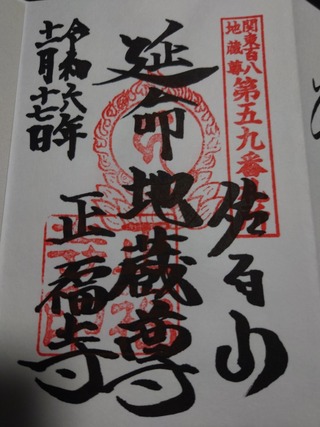 関東百八
地蔵尊
第五九番
佐白山
延命地蔵尊
正福寺
令和六年
十一月十七日